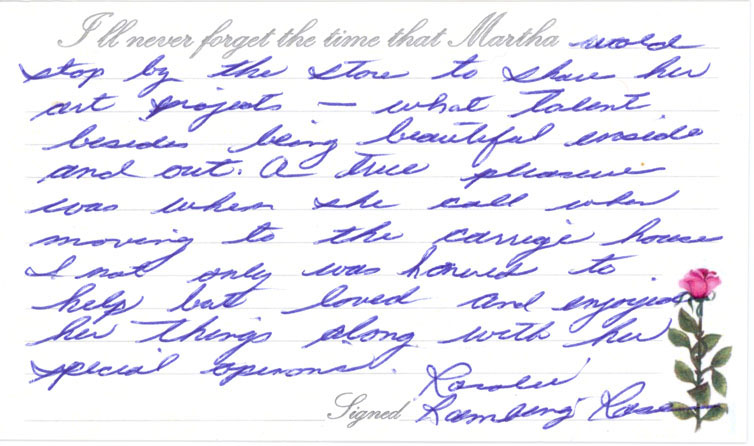 I'll never forget the time that Martha would
stop by the store to share her
art projects — what talent
besides being beautiful inside
and out. A true pleasure
was when she call when
moving to the carrige house
I not only was honred to
help but loved and enjoyed
her things along with her
special openons.
Signed Rose